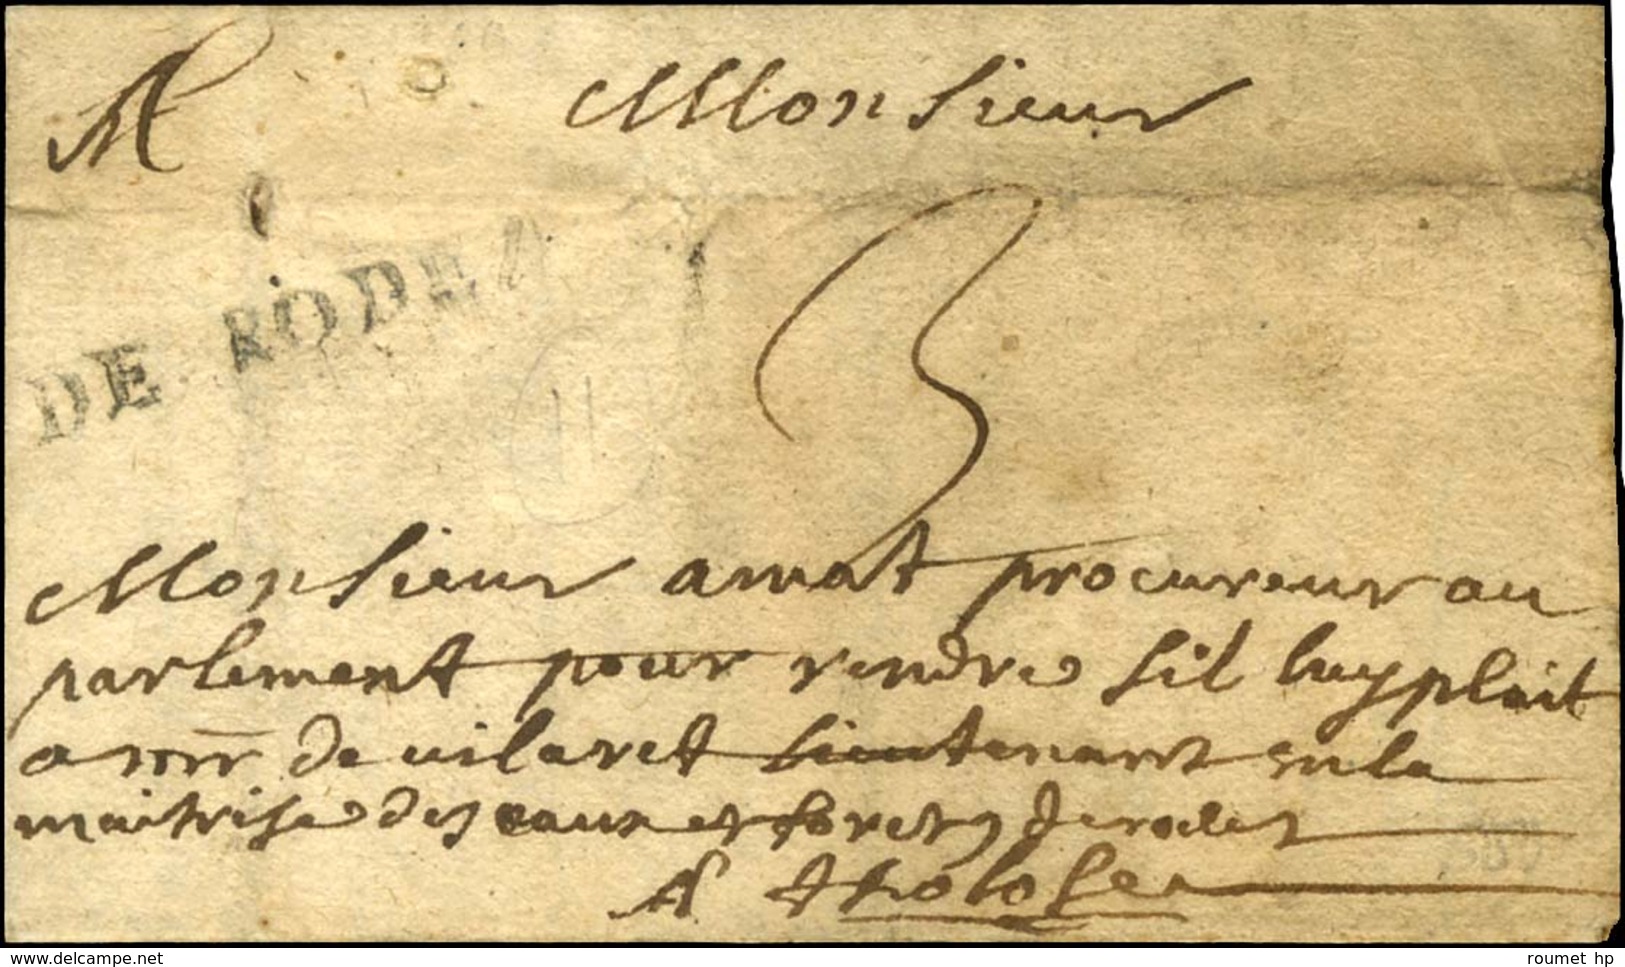 A Monsieur
DE RODE
3
Monsieur amat procureur au
parlement pour rendre sil luy plait
a mr de vilaret lieutenant en la
maitrise des eaux et forets de rodes
A Tholose
delcampe.net
roumet hp